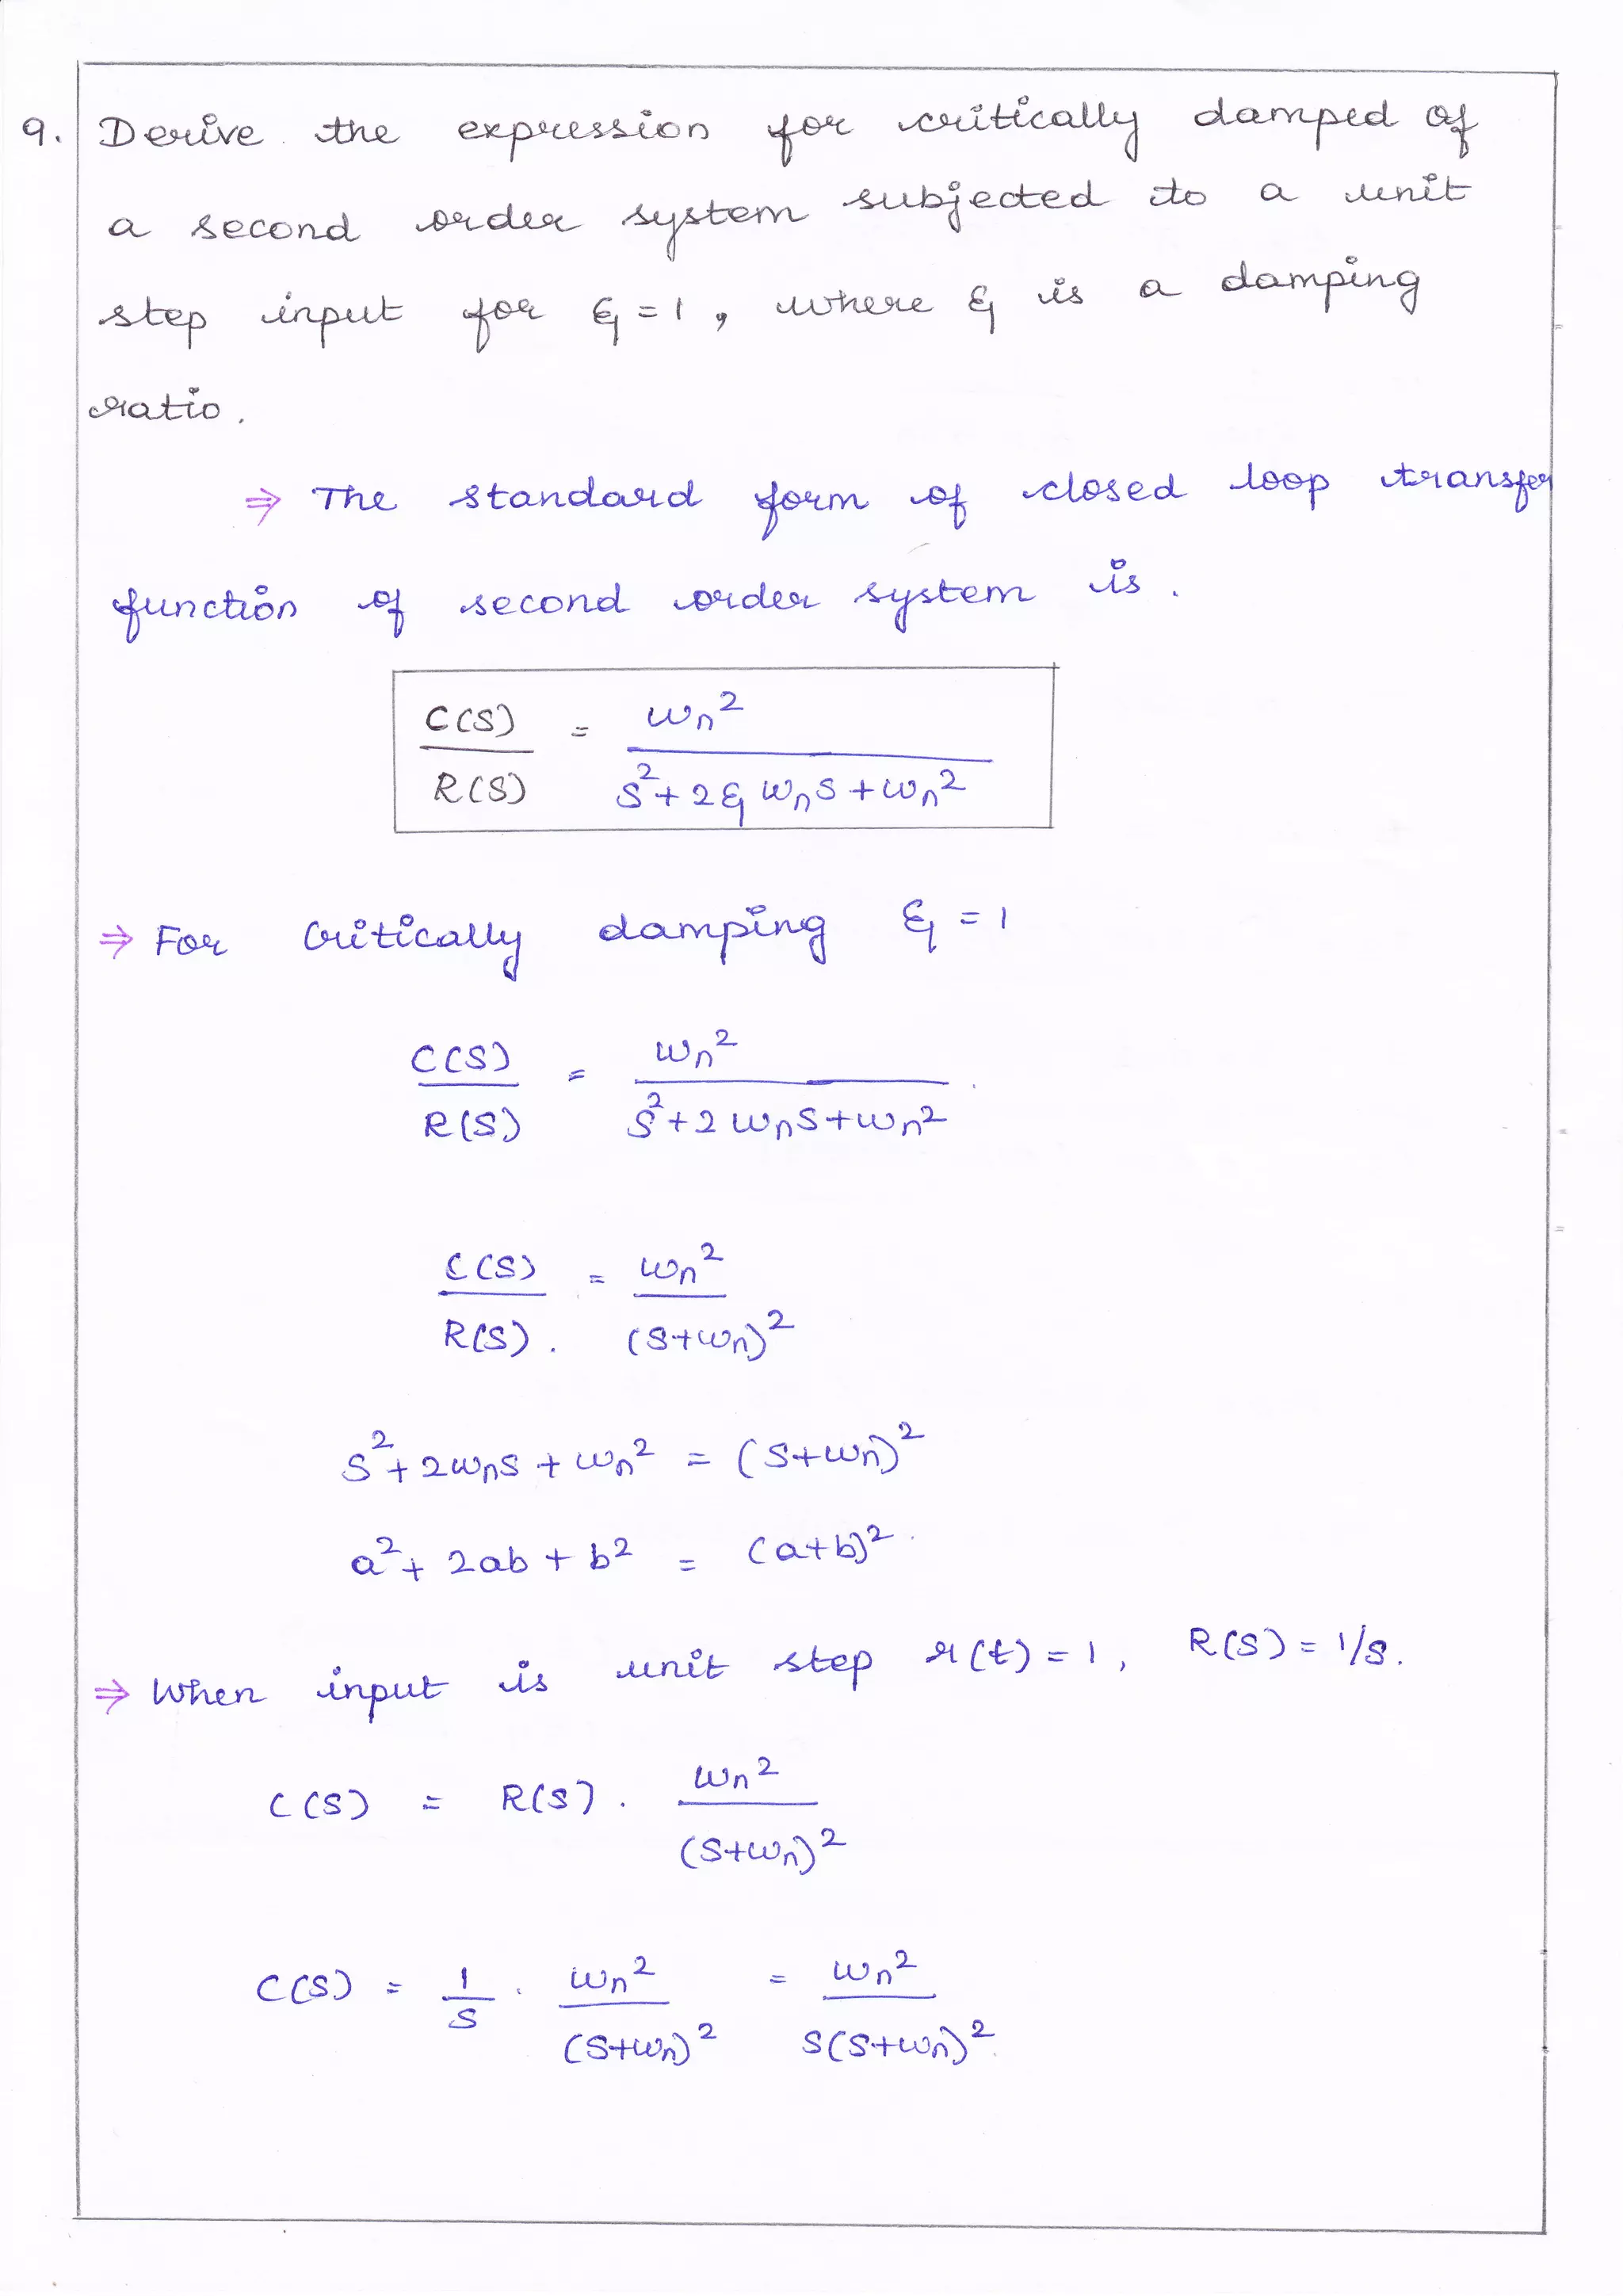 9. Derive the expression for critically damped of
a second order system subjected to a unit
step input for ξ = 1, where ξ is a damping
ratio.
⇒ The standard form of closed loop transfer
function of second order system is.
C(S)/R(S) = ωn²/(S²+2ξωnS+ωn²)
⇒ For Critically damping ξ = 1
C(S)/R(S) = ωn²/(S²+2ωnS+ωn²)
C(S)/R(S). = ωn²/(S+ωn)²
S²+2ωnS+ωn² = (S+ωn)²
a²+2ab+b² = (a+b)².
⇒ When input is unit step r(t) = 1, R(S) = 1/S.
C(S) = R(S) . ωn²/(S+ωn)²
C(S) = 1/S . ωn²/(S+ωn)² = ωn²/S(S+ωn)².